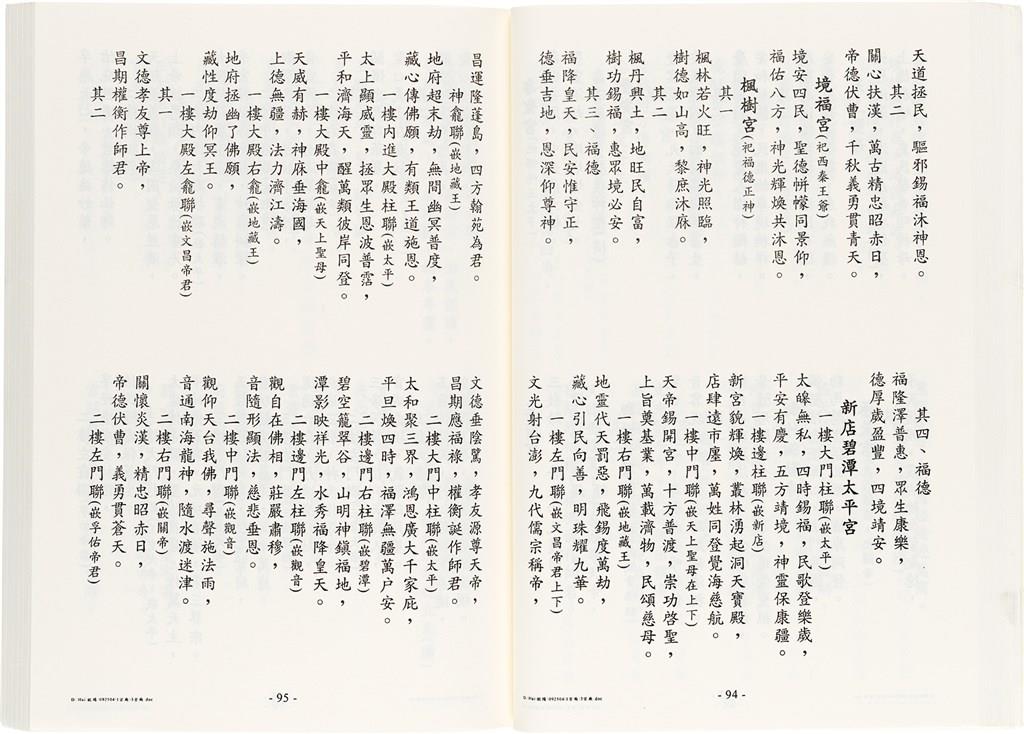 天道拯民，驅邪錫福沐神恩。
其二
關心扶漢，萬古精忠昭赤日，
帝德伏曹，千秋義勇貫青天。
境福宮(祀西秦王爺)
境安四民，聖德帡幪同景仰，
福佑八方，神光輝煥共沐恩。
楓樹宮(祀福德正神)
其一
楓林若火旺，神光照臨，
樹德如山高，黎庶沐庥。
其二
楓丹興土，地旺民自富，
樹功錫福，惠眾境必安。
其三、福德
福降皇天，民安惟守正，
德垂吉地，恩深仰尊神。
其四、福德
福隆澤普惠，眾生康樂，
德厚歲盈豐，四境靖安。
新店碧潭太平宮
一樓大門柱聯(嵌太平)
太皞無私，四時錫福，民歌登樂歲，
平安有慶，五方靖境，神靈保康疆。
一樓邊柱聯(嵌新店)
新宮貌輝煥，叢林湧起洞天寶殿，
店肆遠市廛，萬姓同登覺海慈航。
一樓中門聯(嵌天上聖母在上下)
天帝錫開宮，十方普渡，崇功啓聖，
上旨奠基業，萬載濟物，民頌慈母。
一樓右門聯(嵌地藏王)
地靈代天罰惡，飛錫度萬劫，
藏心引民向善，明珠耀九華。
一樓左門聯(嵌文昌帝君上下)
文光射台澎，九代儒宗稱帝，
- 94 -
昌運隆蓬島，四方翰苑為君。
神龕聯(嵌地藏王)
地府超末劫，無間幽冥普度，
藏心傳佛願，有類王道施恩。
一樓內進大殿柱聯(嵌太平)
太上顯威靈，拯眾生恩波普霑，
平和濟海天，醒萬類彼岸同登。
一樓大殿中龕(嵌天上聖母)
天威有赫，神庥垂海國，
上德無疆，法力濟江濤。
一樓大殿右龕(嵌地藏王)
地府拯幽了佛願，
藏性度劫仰冥王。
一樓大殿左龕聯(嵌文昌帝君)
其一
文德孝友尊上帝，
昌期權衡作師君。
其二
文德垂陰騭，孝友源尊天帝，
昌期應福祿，權衡誕作師君。
二樓大門中柱聯(嵌太平)
太和聚三界，鴻恩廣大千家庇，
平旦煥四時，福澤無疆萬戶安。
二樓邊門右柱聯(嵌碧潭)
碧空籠翠谷，山明神鎮福地，
潭影映祥光，水秀福降皇天。
二樓邊門左柱聯(嵌觀音)
觀自在佛相，莊嚴肅穆，
音隨形顯法，慈悲垂恩。
二樓中門聯(嵌觀音)
觀仰天台我佛，尋聲施法雨，
音通南海龍神，隨水渡迷津。
二樓右門聯(嵌關帝)
關懷炎漢，精忠昭赤日，
帝德伏曹，義勇貫蒼天。
二樓左門聯(嵌孚佑帝君)
- 95 -